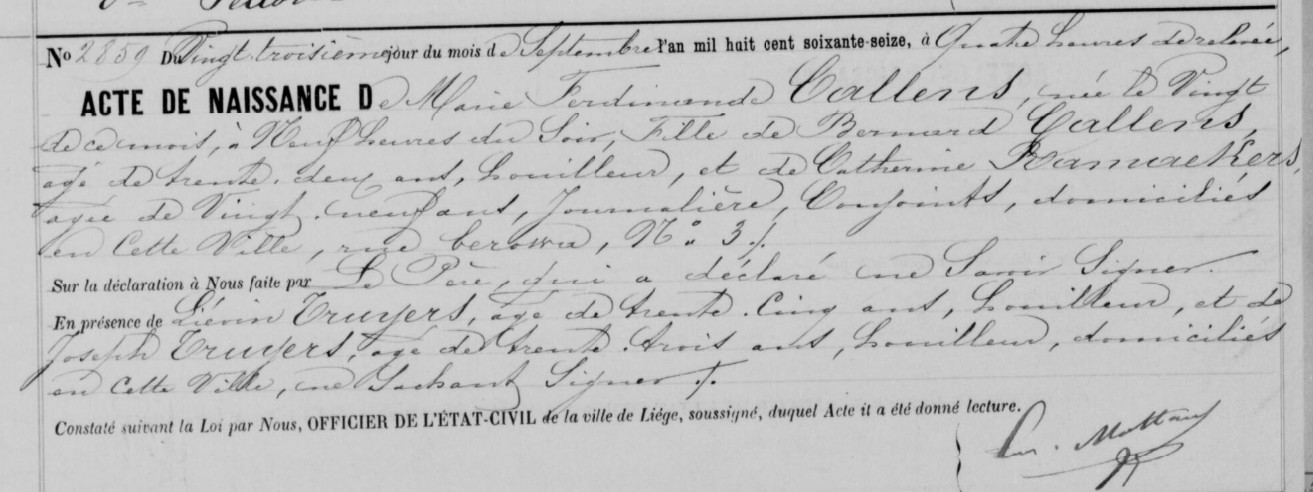 No 2859 Du Vingt-troisième jour du mois de Septembre l'an mil huit cent soixante-seize, à Quatre heures de relevée,
ACTE DE NAISSANCE De Marie Ferdinande Callens, née le Vingt
de ce mois, à Neuf heures du Soir, Fille de Bernard Callens,
agé de trente-deux ans, houilleur, et de Catherine Ramaekers,
agée de Vingt-neuf ans, Journalière, Conjoints, domiciliés
en cette Ville, rue N.° 3 ./.
Sur la déclaration à Nous faite par Le Père, qui a déclaré ne Savoir Signer.
En présence de Liévin Truyers, agé de trente-Cinq ans, houilleur, et de
Joseph Truyers, agé de trente-trois ans, houilleur, domiciliés
en cette Ville, ne Sachant Signer ./.
Constaté suivant la Loi par Nous, OFFICIER DE L'ÉTAT-CIVIL de la ville de Liége, soussigné, duquel Acte il a été donné lecture.